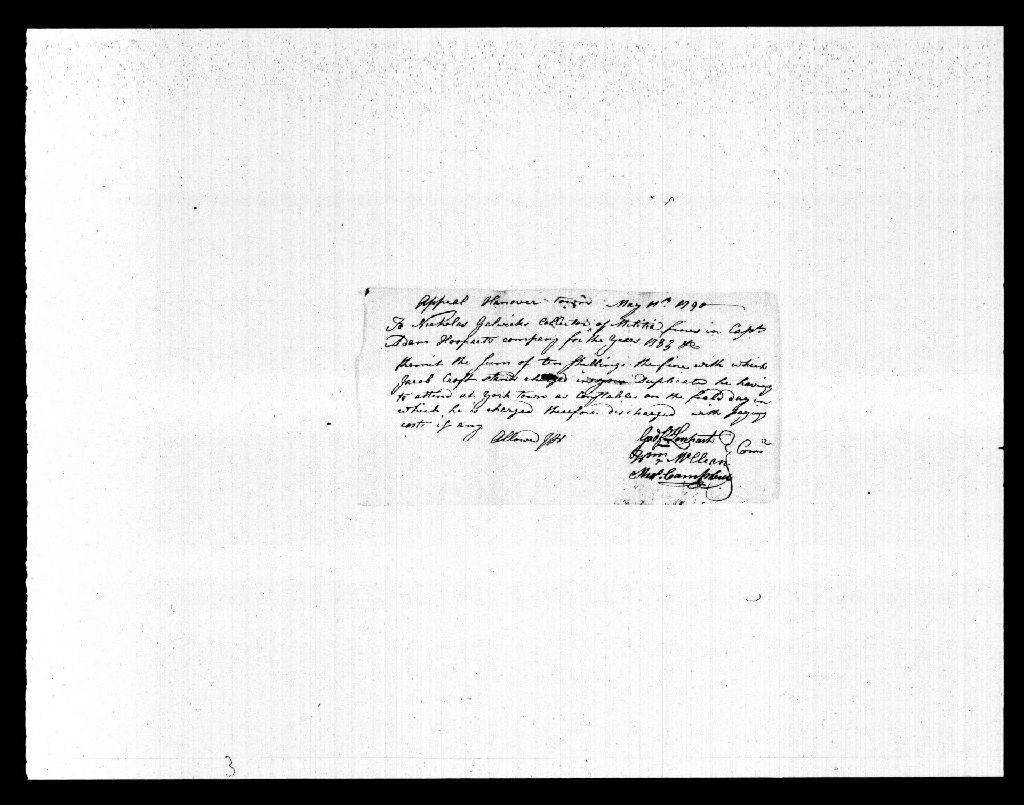 Appeal Hanover May 11th 1790
To Nicholas Gelwicks Collector of Militia fines in Capt.
Adam Hooperts company for the Year 1783 &c
Remit the Sum of ten Shillings the fine with which
Jacob Croft stands charged in your Duplicate he having
to attend at York town as Constable on the field day in
which he is charged therefore discharged with paying
costs if any
Allowed
Wm McClean
3